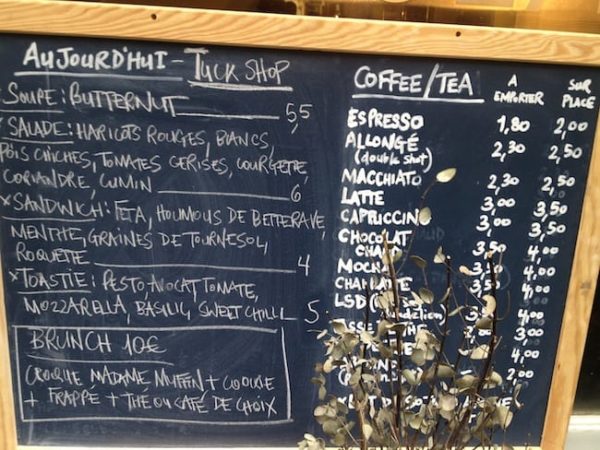 AUJOURD'HUI - TUCK SHOP
SOUPE: BUTTERNUT 5,5
SALADE: HARICOTS ROUGES, BLANCS,
POIS CHICHES, TOMATES CERISES, COURGETTE
CORIANDRE, CUMIN 6
*SANDWICH: FETA, HOUMOUS DE BETTERAVE,
MENTHE, GRAINES DE TOURNESOL,
ROQUETTE 4
*TOASTIE: PESTO-AVOCAT, TOMATE,
MOZZARELLA, BASILIC, SWEET CHILLI 5
BRUNCH 10€
CROQUE MADAME, MUFFIN + COOKIE
+ FRAPPÉ + THÉ OU CAFÉ DE CHOIX
COFFEE/TEA A EMPORTER SUR PLACE
ESPRESSO 1,80 2,00
ALLONGÉ 2,30 2,50
(double shot)
MACCHIATO 2,30 2,50
LATTE 3,00 3,50
CAPPUCCINO 3,00 3,50
CHOCOLAT 3,50 4,00
CHAI
MOCHA 3,50 4,00
CHAI LATTE 3,5 4,00
LSD 4,00
3,00
4,00
2,00